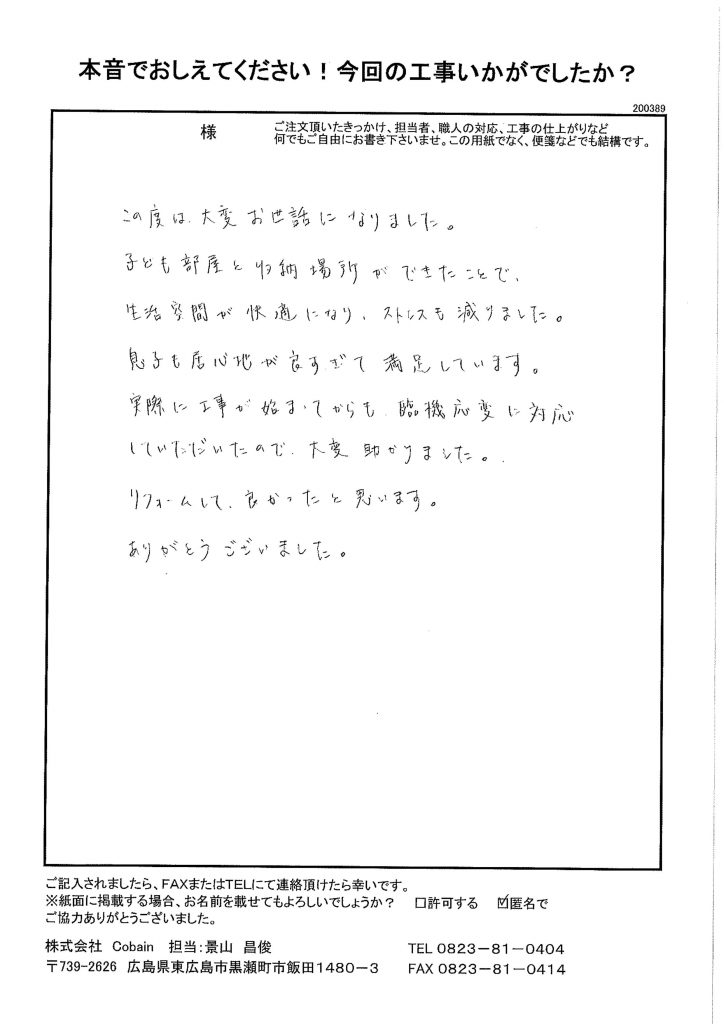 本音でおしえてください！今回の工事いかがでしたか？
200389
様
ご注文頂いたきっかけ、担当者、職人の対応、工事の仕上がりなど
何でもご自由にお書き下さいませ。この用紙でなく、便箋などでも結構です。
この度は、大変お世話になりました。
子ども部屋と収納場所ができたことで、
生活空間が快適になり、ストレスも減りました。
息子も居心地が良すぎて満足しています。
実際に工事が始まってからも、臨機応変に対応
していただいたので、大変助かりました。
リフォームして、良かったと思います。
ありがとうございました。
ご記入されましたら、FAXまたはTELにて連絡頂けたら幸いです。
※紙面に掲載する場合、お名前を載せてもよろしいでしょうか？ □許可する ☑匿名で
ご協力ありがとうございました。
株式会社 Cobain 担当：景山 昌俊 TEL 0823－81－0404
〒739-2626 広島県東広島市黒瀬町市飯田1480－3 FAX 0823－81－0414